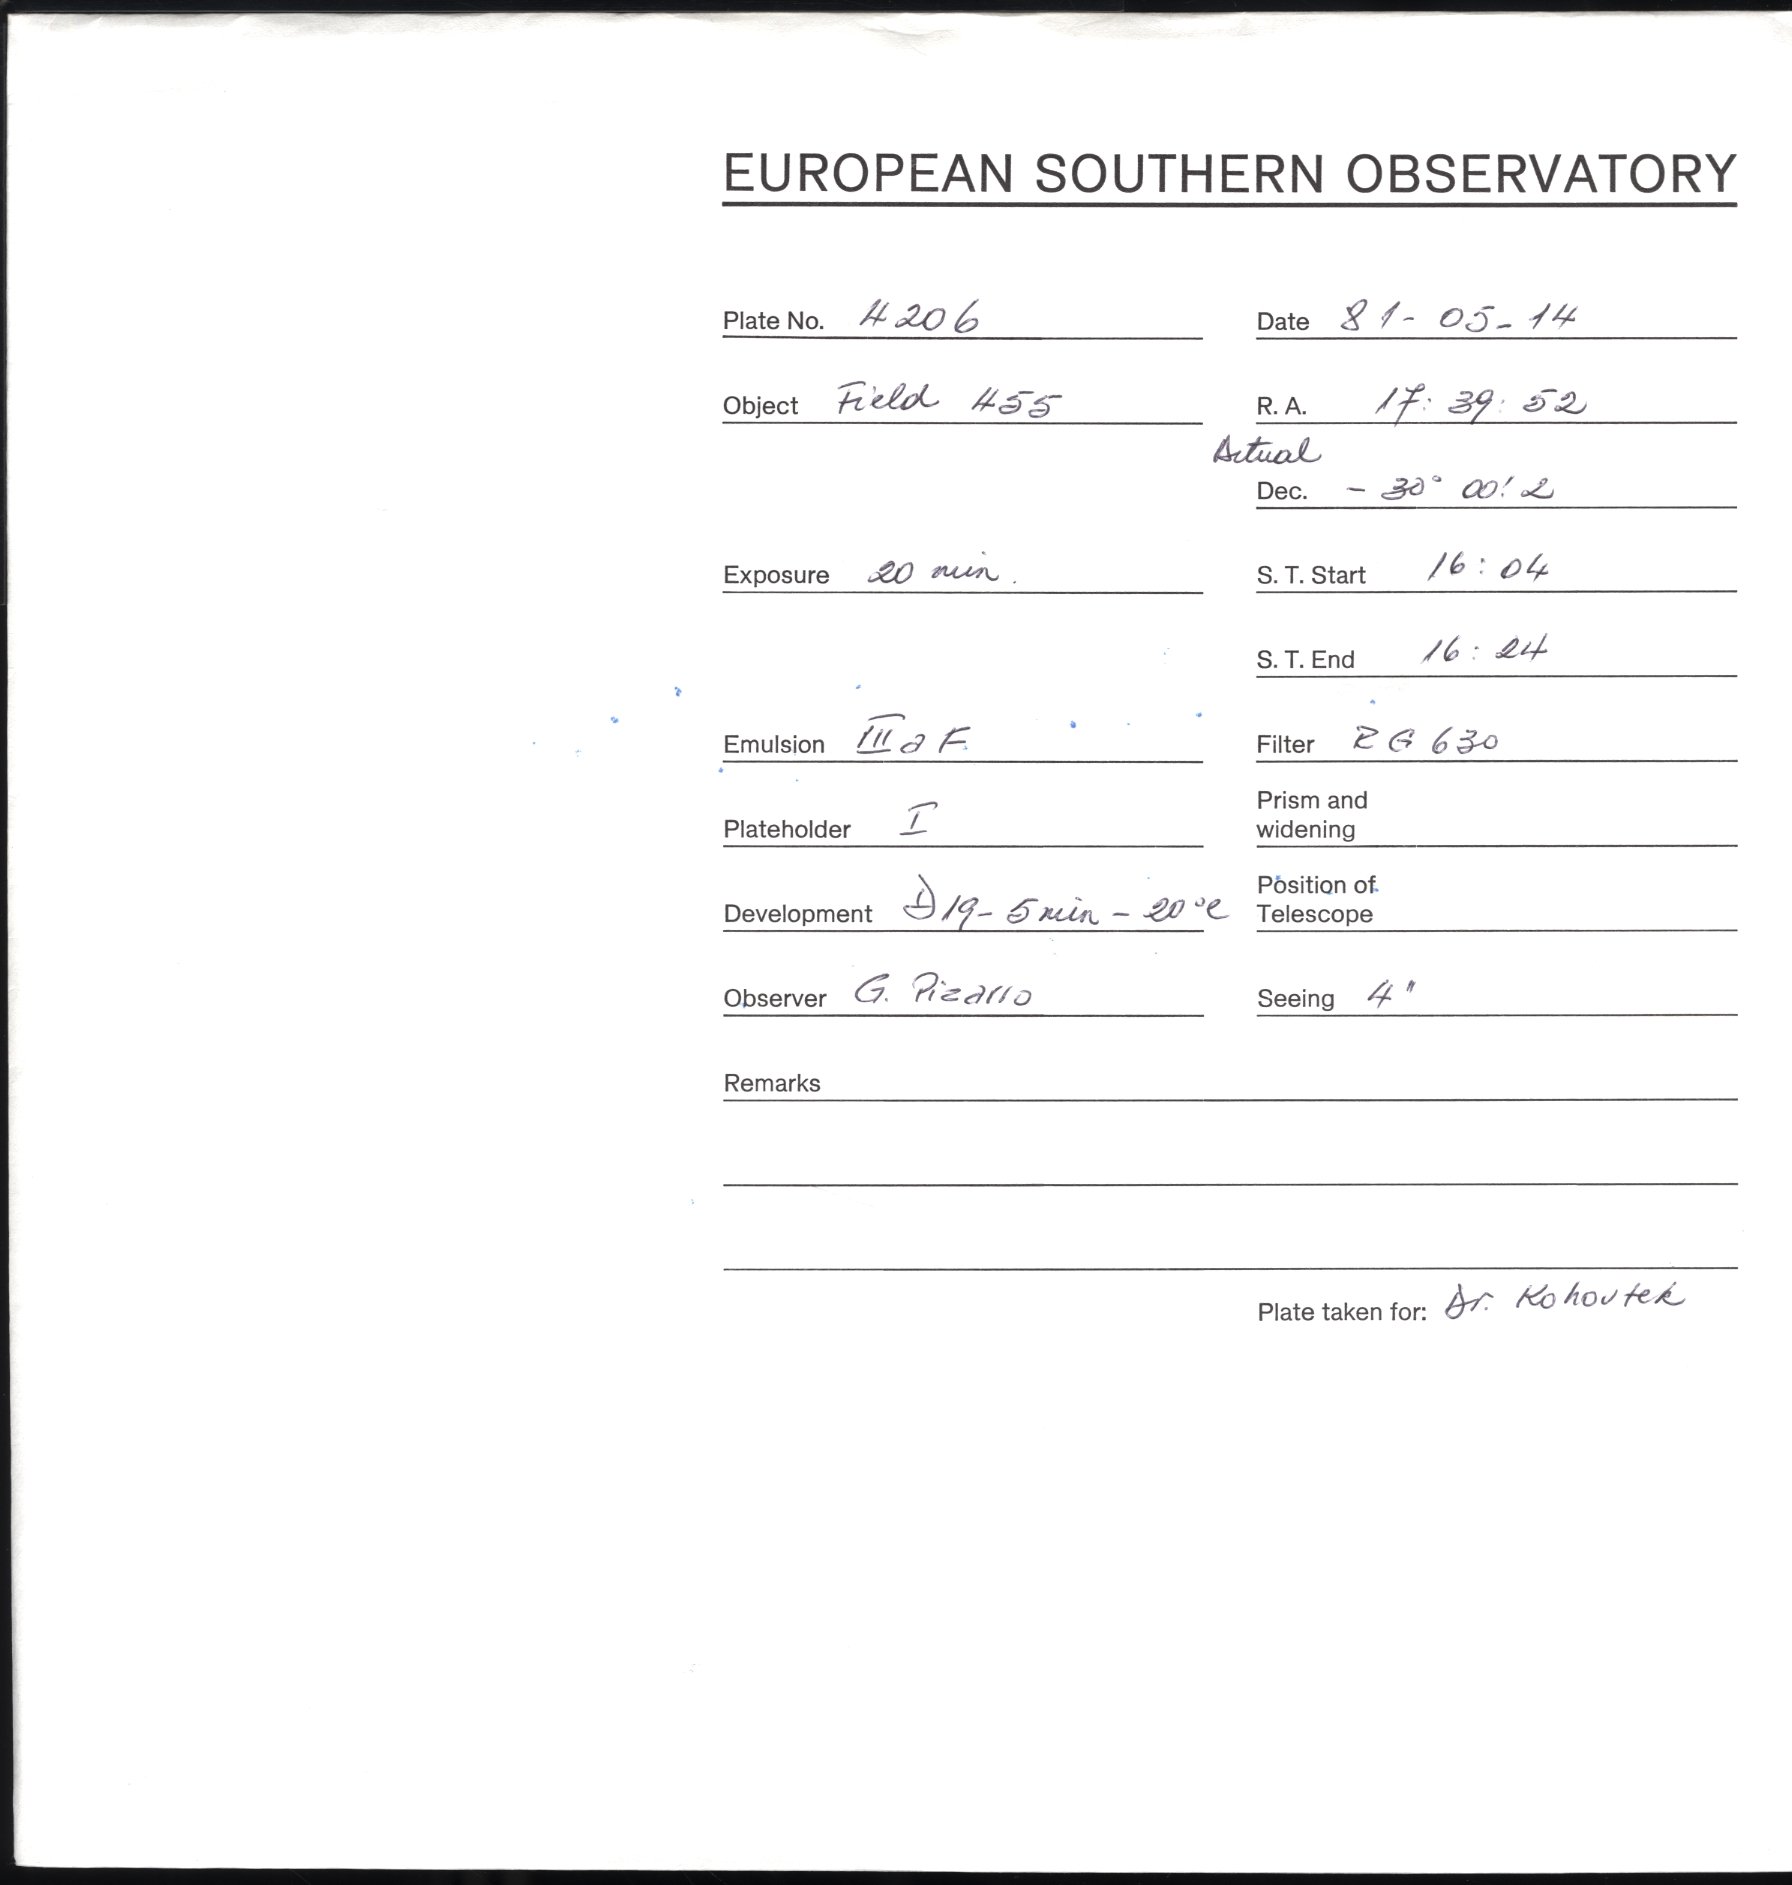 EUROPEAN SOUTHERN OBSERVATORY
Plate No. 4206 Date 81-05-14
Object Field 455 R. A. 17:39:52
Actual
Dec. - 30° 00!2
Exposure 20 min. S. T. Start 16:04
S. T. End 16:24
Emulsion III a F Filter RG 630
Plateholder I Prism and
widening
Development D19 - 5 min - 20°C Position of
Telescope
Observer G. Pizarro Seeing 4"
Remarks
Plate taken for: Dr. Kohoutek